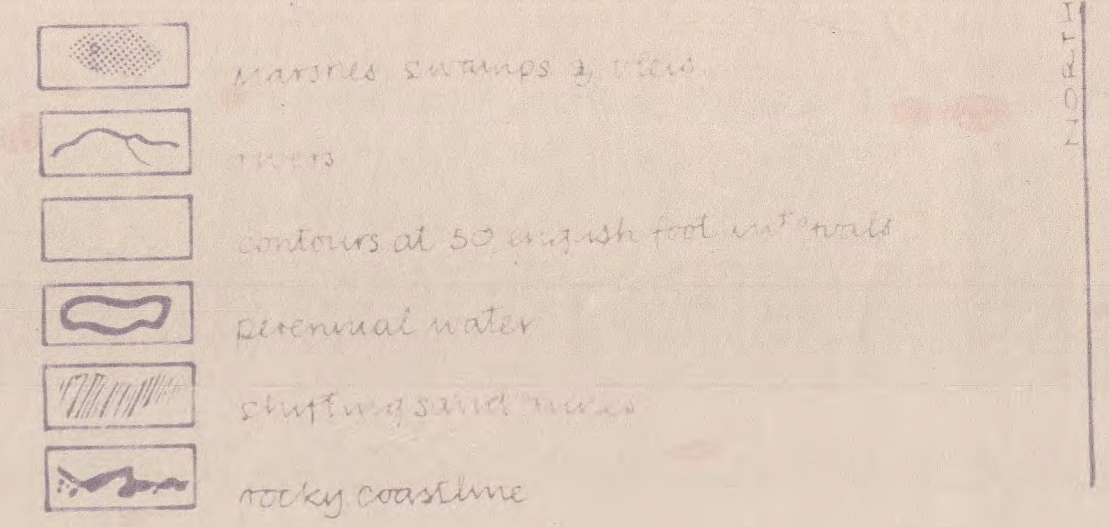 NORTH
marshes swamps & vleis
rivers
contours at 50 english foot intervals
perennial water
shifting sand dunes
rocky coastline